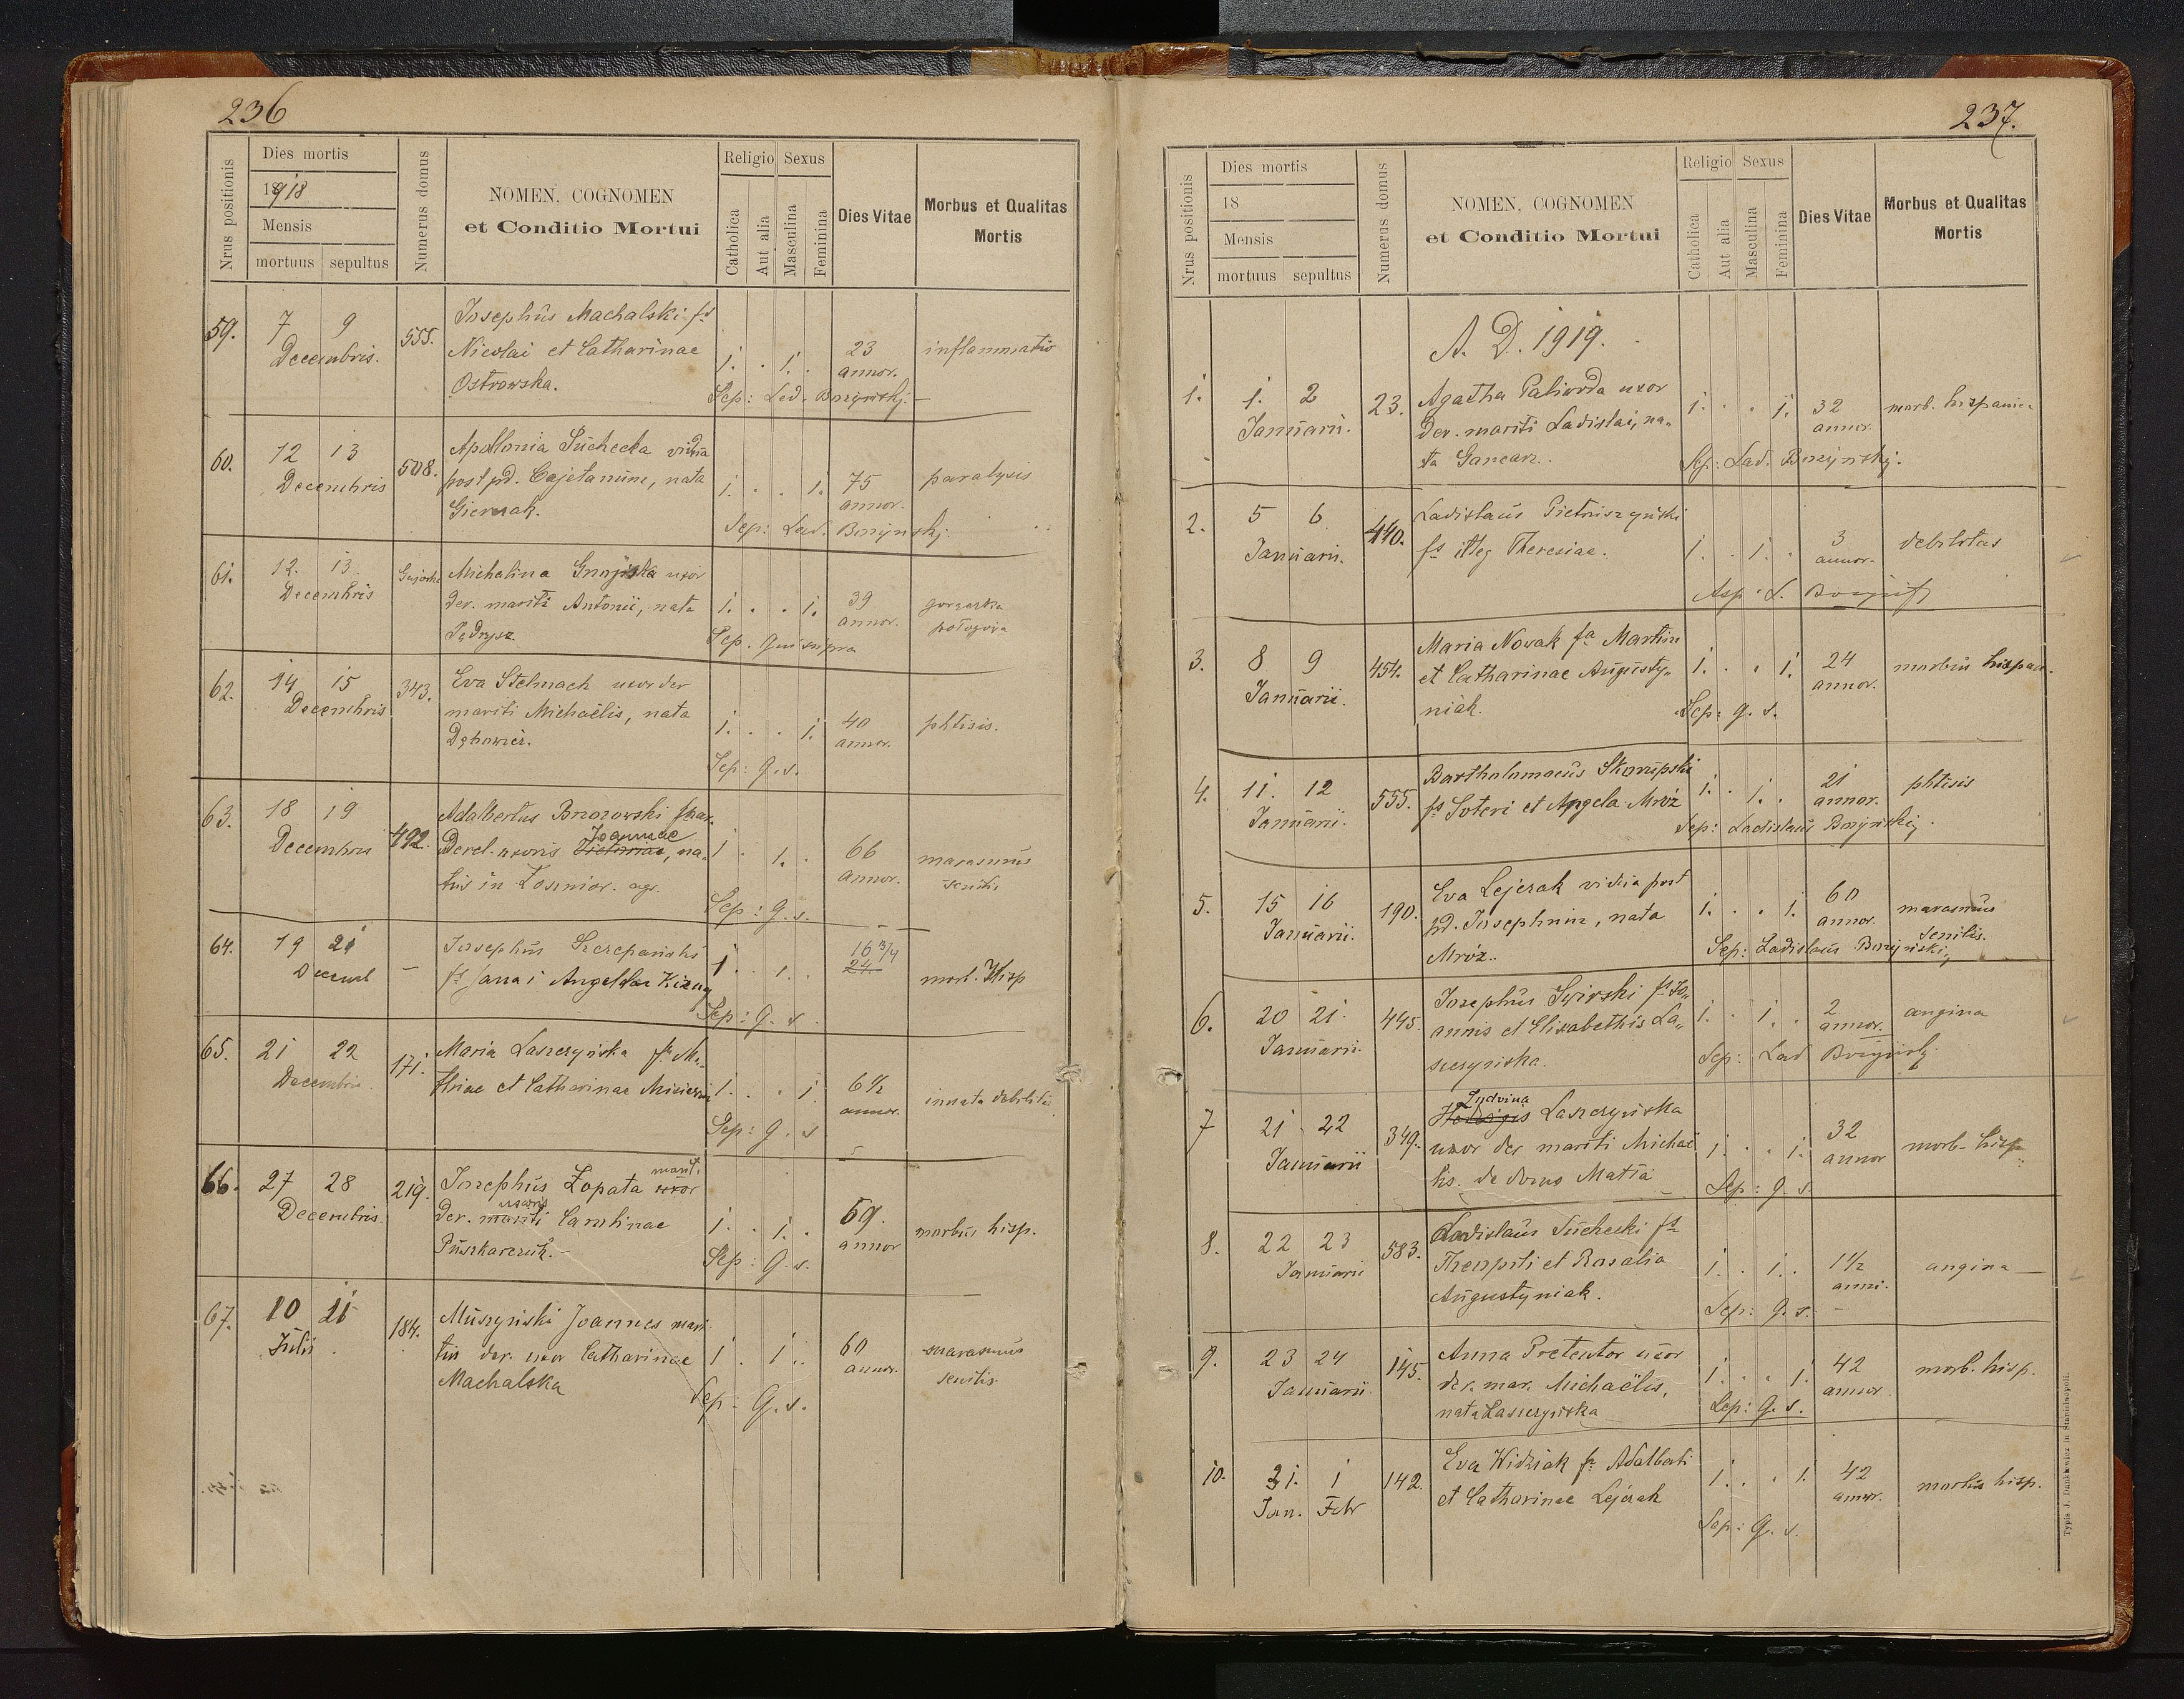 236
Nrus positionis
Dies mortis
1918
Mensis
mortuus sepultus
Numerus domus
NOMEN, COGNOMEN
et Conditio Mortui
Religio Sexus
Catholica
Aut alia
Masculina
Feminina
Dies Vitae
Morbus et Qualitas
Mortis
59. 7 9 Decembris. 555.
Josephus Machalski fs
Nicolai et Catharinae
Ostrowska.
1. . 1. . 23 annor. inflammatio
Sep: Lad. Bożyński.
60. 12 13 Decembris 508.
Apollonia Suchecka vidua
post pd. Cajetanum, nata
1. . . 1. 75 annor. paralysis
Sep: Lad. Bożyński.
61. 12. 13. Decembris
Michalina uxor
der. mariti Antonii, nata
1. . . 1. 39 annor. gorączka
połogowa
Sep. qui supra
62. 14 15 Decembris 343.
Eva Stelmach uxor der
mariti Michaëlis, nata
1. . . 1. 40 annor. phtisis.
Sep: q. s.
63. 18 19 Decembris 492.
Adalbertus Brzozowski
Derel. uxoris Joannae Victoriae, na„
tus in agr.
1 . 1. . 66 annor. marasmus
senilis
Sep: q. s.
64. 19 21 Decemb –
Josephus Szczepański
fs Jana i Angela
1 . 1. . 16 3/4 24 morb. Hisp
Sep: q. s.
65. 21 22 Decembris 171.
Maria Laszczyńska fa Ma„
thiae et Catharinae
1. . . 1 6½ annor. innata debilitas
Sep: q. s
66. 27 28 Decembris. 219.
Josephus Łopata marit. uxor
der. uxoris mariti Carolinae
Puszkarczuk.
1. . 1. . 69. annor morbus hisp.
Sep: q. s.
67. 10 11 Julii. 184.
Muszyński Joannes mari
tus der. uxor Catharinae
Machalska
1 . 1 . . 60 annor. marasmus
senilis
Sep: q. s.
237.
Nrus positionis
Dies mortis
18
Mensis
mortuus sepultus
Numerus domus
NOMEN, COGNOMEN
et Conditio Mortui
Religio Sexus
Catholica
Aut alia
Masculina
Feminina
Dies Vitae
Morbus et Qualitas
Mortis
A. D. 1919.
1. 1. 2 Januarii. 23.
Agatha Paliwoda uxor
der. mariti Ladislai, na„
ta Gancarz.
1. . . 1. 32 annor. morb. hispanic
Sep: Lad. Bożyński.
2. 5 6 Januarii. 440.
Ladislaus Pietruszyński
fs illeg Theresiae.
1. . 1. . 3 annor. debilitas
3. 8 9 Januarii. 454.
Maria Nowak fa Martini
et Catharinae Augusty„
niak.
1. . . 1. 24 annor. morbus hispan.
Sep: q. s.
4. 11. 12 Januarii. 555.
Bartholomaeus Skorupski
fs Soteri et Angela Mróz
1. . 1. . 21 annor. phtisis
Sep: Ladislaus Bożyński.
5. 15 16 Januarii. 190.
Eva Lejczak vidua post
pd. Josephum, nata
Mróz.
1. . . 1. 60 annor. marasmus
senilis.
Sep: Ladislaus Bożyński
6. 20 21. Januarii. 445.
Josephus Swirski fs Jo„
annis et Elisabethis La„
szczyńska.
1. . 1. . 2 annor. angina
Sep: Lad Bożyński.
7 21 22 Januarii 349.
Ludvina Hedvigis Laszczyńska
uxor der mariti Michaë
lis. de domo Matia
1. . . 1. 32 annor morb. hisp
Sep: q. s.
8. 22 23 Januarii 583.
Ladislaus Suchecki fs
et Rosalia
Augustyniak.
1. . 1. . 1½ anni. angina –
Sep: q. s. –
9. 23 24 Januarii. 145.
Anna Pretentor uxor
der. mar. Michaëlis,
nata Laszczyńska
1. . . 1. 42 annor. morb. hisp.
Sep: q. s.
10. 31. 1 Jan. Febr 142.
Eva Widziak fa Adalberti
et Catharinae Lejczak
1. . . 1. 42 annor. morbus hisp.
Sep: q. s.
Typis J. Dankiewicz in Stanislaopoli.